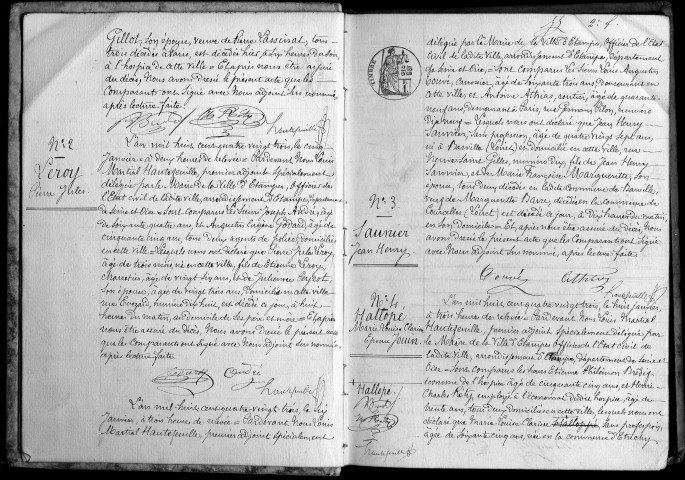 Gillot, son épouse, veuve de Pierre Passinal, tous
trois décédés à Paris, est décédée hier, à six heures du soir
à l'hospice de cette ville = Et après nous être assuré
du décès, Nous avons dressé le présent acte que les
Comparants ont signé avec Nous adjoint sus nommé,
après lecture faite.
Hautefeuille
N° 2
Leroy
Pierre Jules
L'an mil huit cent quatre vingt trois, le cinq
Janvier à deux heures de relevée = Pardevant Nous Louis
Martial Hautefeuille, premier adjoint spécialement
délégué par le Maire de la Ville d'Etampes, Officier de
l'Etat Civil de ladite ville, arrondissement d'Etampes, département
de Seine et Oise = Sont comparus les Sieurs Joseph André, âgé
de soixante quatre ans, et Augustin Eugène Godard, âgé de
cinquante cinq ans, tous deux agents de police, domiciliés
en cette ville = Lesquels nous ont déclaré que Pierre Jules Leroy,
âgé de trois mois, né en cette ville, fils de Etienne Leroy,
Charretier, âgé de vingt six ans, et de Julienne
son épouse, âgée de vingt trois ans, domiciliés en cette ville
rue Evezard, numéro dix huit, est décédé ce jour, à huit
heures du matin, au domicile de ses père et mère = Et après
nous être assuré du décès, Nous avons dressé le présent acte
que les Comparants ont signé avec Nous adjoint sus nommé,
après lecture faite.
Godard André
Hautefeuille
L'an mil huit cent quatre vingt trois, le six
Janvier, à trois heures de relevée = Pardevant Nous Louis
Martial Hautefeuille, premier adjoint spécialement
2e f.
TIMBRE
délégué par le Maire de la Ville d'Etampes, Officier de l'Etat
Civil de ladite Ville, arrondissement d'Etampes, département
de Seine et Oise, = Sont comparus les Sieurs Louis Augustin
Gouré, Cannier, âgé de soixante trois ans, demeurant en
cette ville, et Antoine Athias, rentier, âgé de quarante
neuf ans demeurant à Paris, rue Germain Pilon, numéro
= Lesquels nous ont déclaré que Jean Henry
Saunier, sans profession, âgé de quatre vingt sept ans,
né à Barville (Loiret) et domicilié en cette ville, rue
Pierre, numéro dix, fils de Jean Henry
Saunier, et de Marie Françoise Margueritte, son
épouse, tous deux décédés en ladite commune de Barville,
veuf de Margueritte Barre, décédée en la commune de
Courcelles (Loiret) est décédé ce jour, à dix heures du matin,
en son domicile = Et, après nous être assuré du décès, Nous
avons dressé le présent acte que les Comparants ont signé
avec Nous adjoint sus nommé, après lecture faite.
N° 3
Saunier
Jean Henry
Hautefeuille
N° 4
Hattope
Marie Louise Clarisse
Epouse Jouin
L'an mil huit cent quatre vingt trois, le huit janvier,
à trois heures de relevée = Pardevant Nous Louis Martial
Hautefeuille, premier adjoint spécialement délégué par
le Maire de la Ville d'Etampes Officier de l'Etat Civil de
ladite ville, arrondissement d'Etampes, département de Seine et
Oise = Sont comparus les Sieurs Etienne Philémon
économe de l'hospice âgé de cinquante cinq ans et Henri
Charles Réty, employé à l'économat dudit hospice, âgé de
trente ans, tous deux domiciliés en cette ville, lesquels nous ont
déclaré que Marie Louise Clarisse Hattoppe, sans profession,
âgée de soixante cinq ans, née en la commune d'Etréchy
Hattope.
Hautefeuille